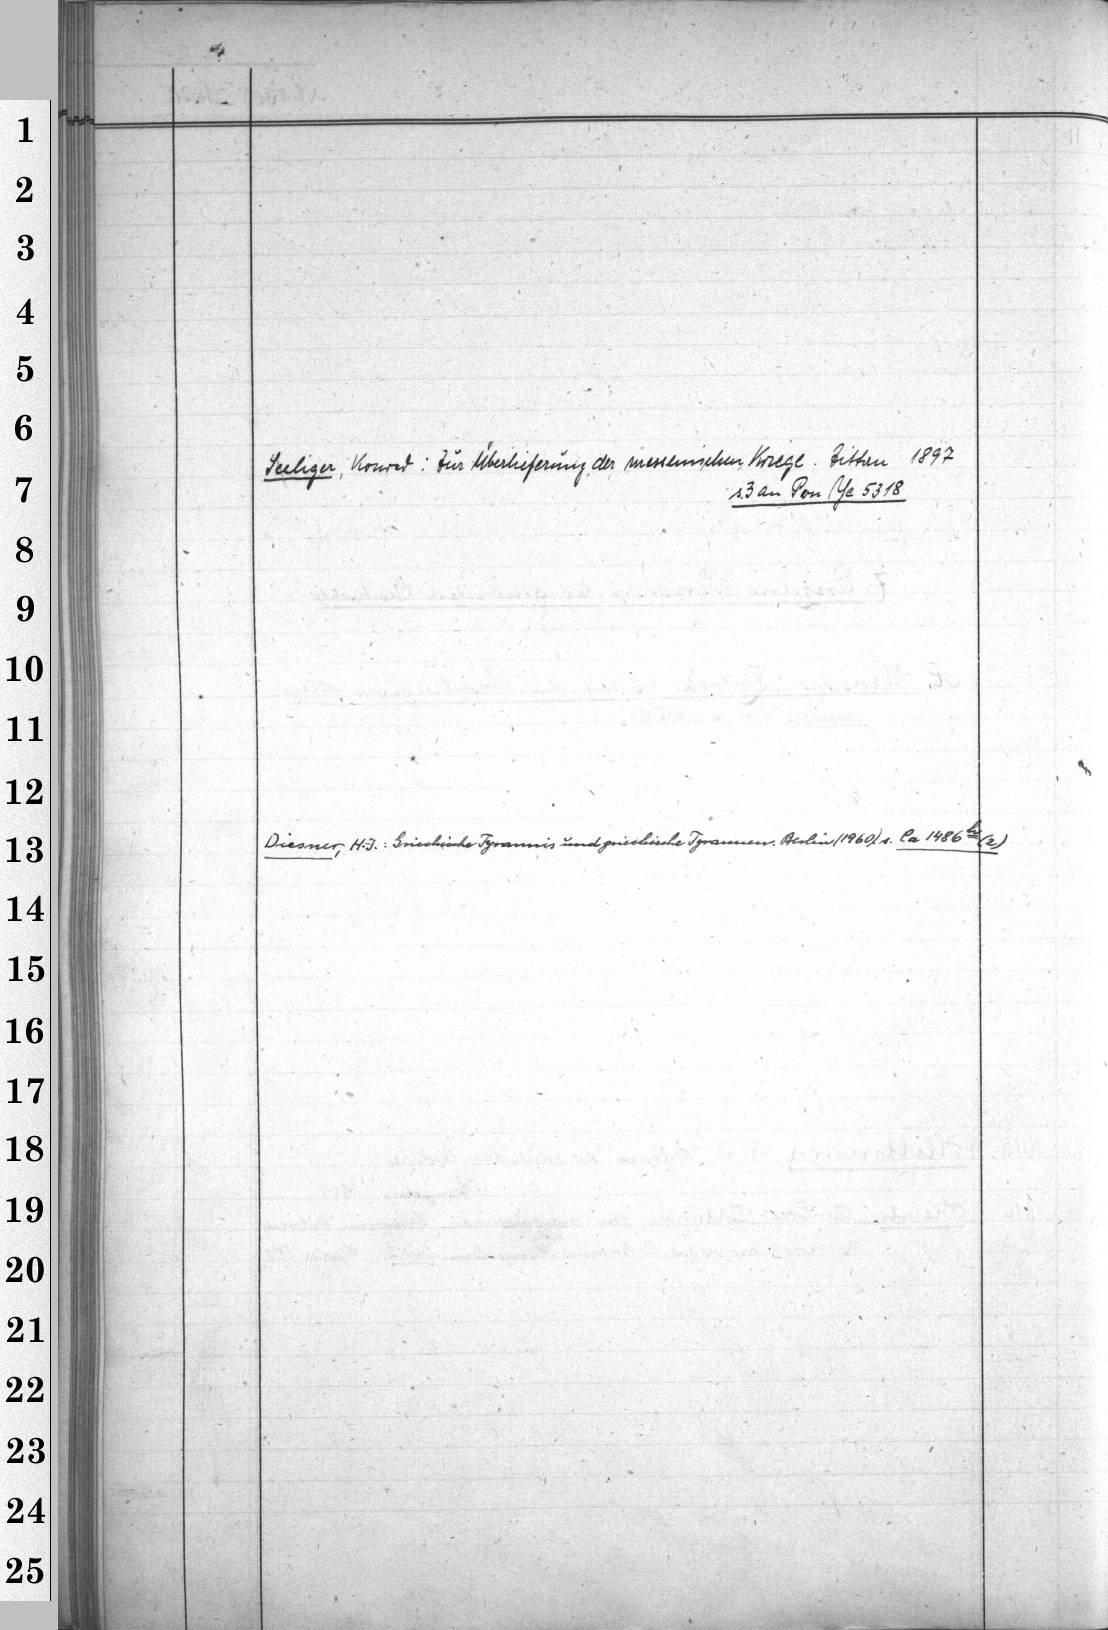 1
2
3
4
5
6
Seeliger, Konrad : Zur Überlieferung der messenischen Kriege. Zittau 1897
7
s.3 an Pon Ye 5318
8
9
10
11
12
13
Diesner, H.-J.: Griechische Tyrannis und griechische Tyrannen. Berlin (1960) s. Ca 1486 (2)
14
15
16
17
18
19
20
21
22
23
24
25